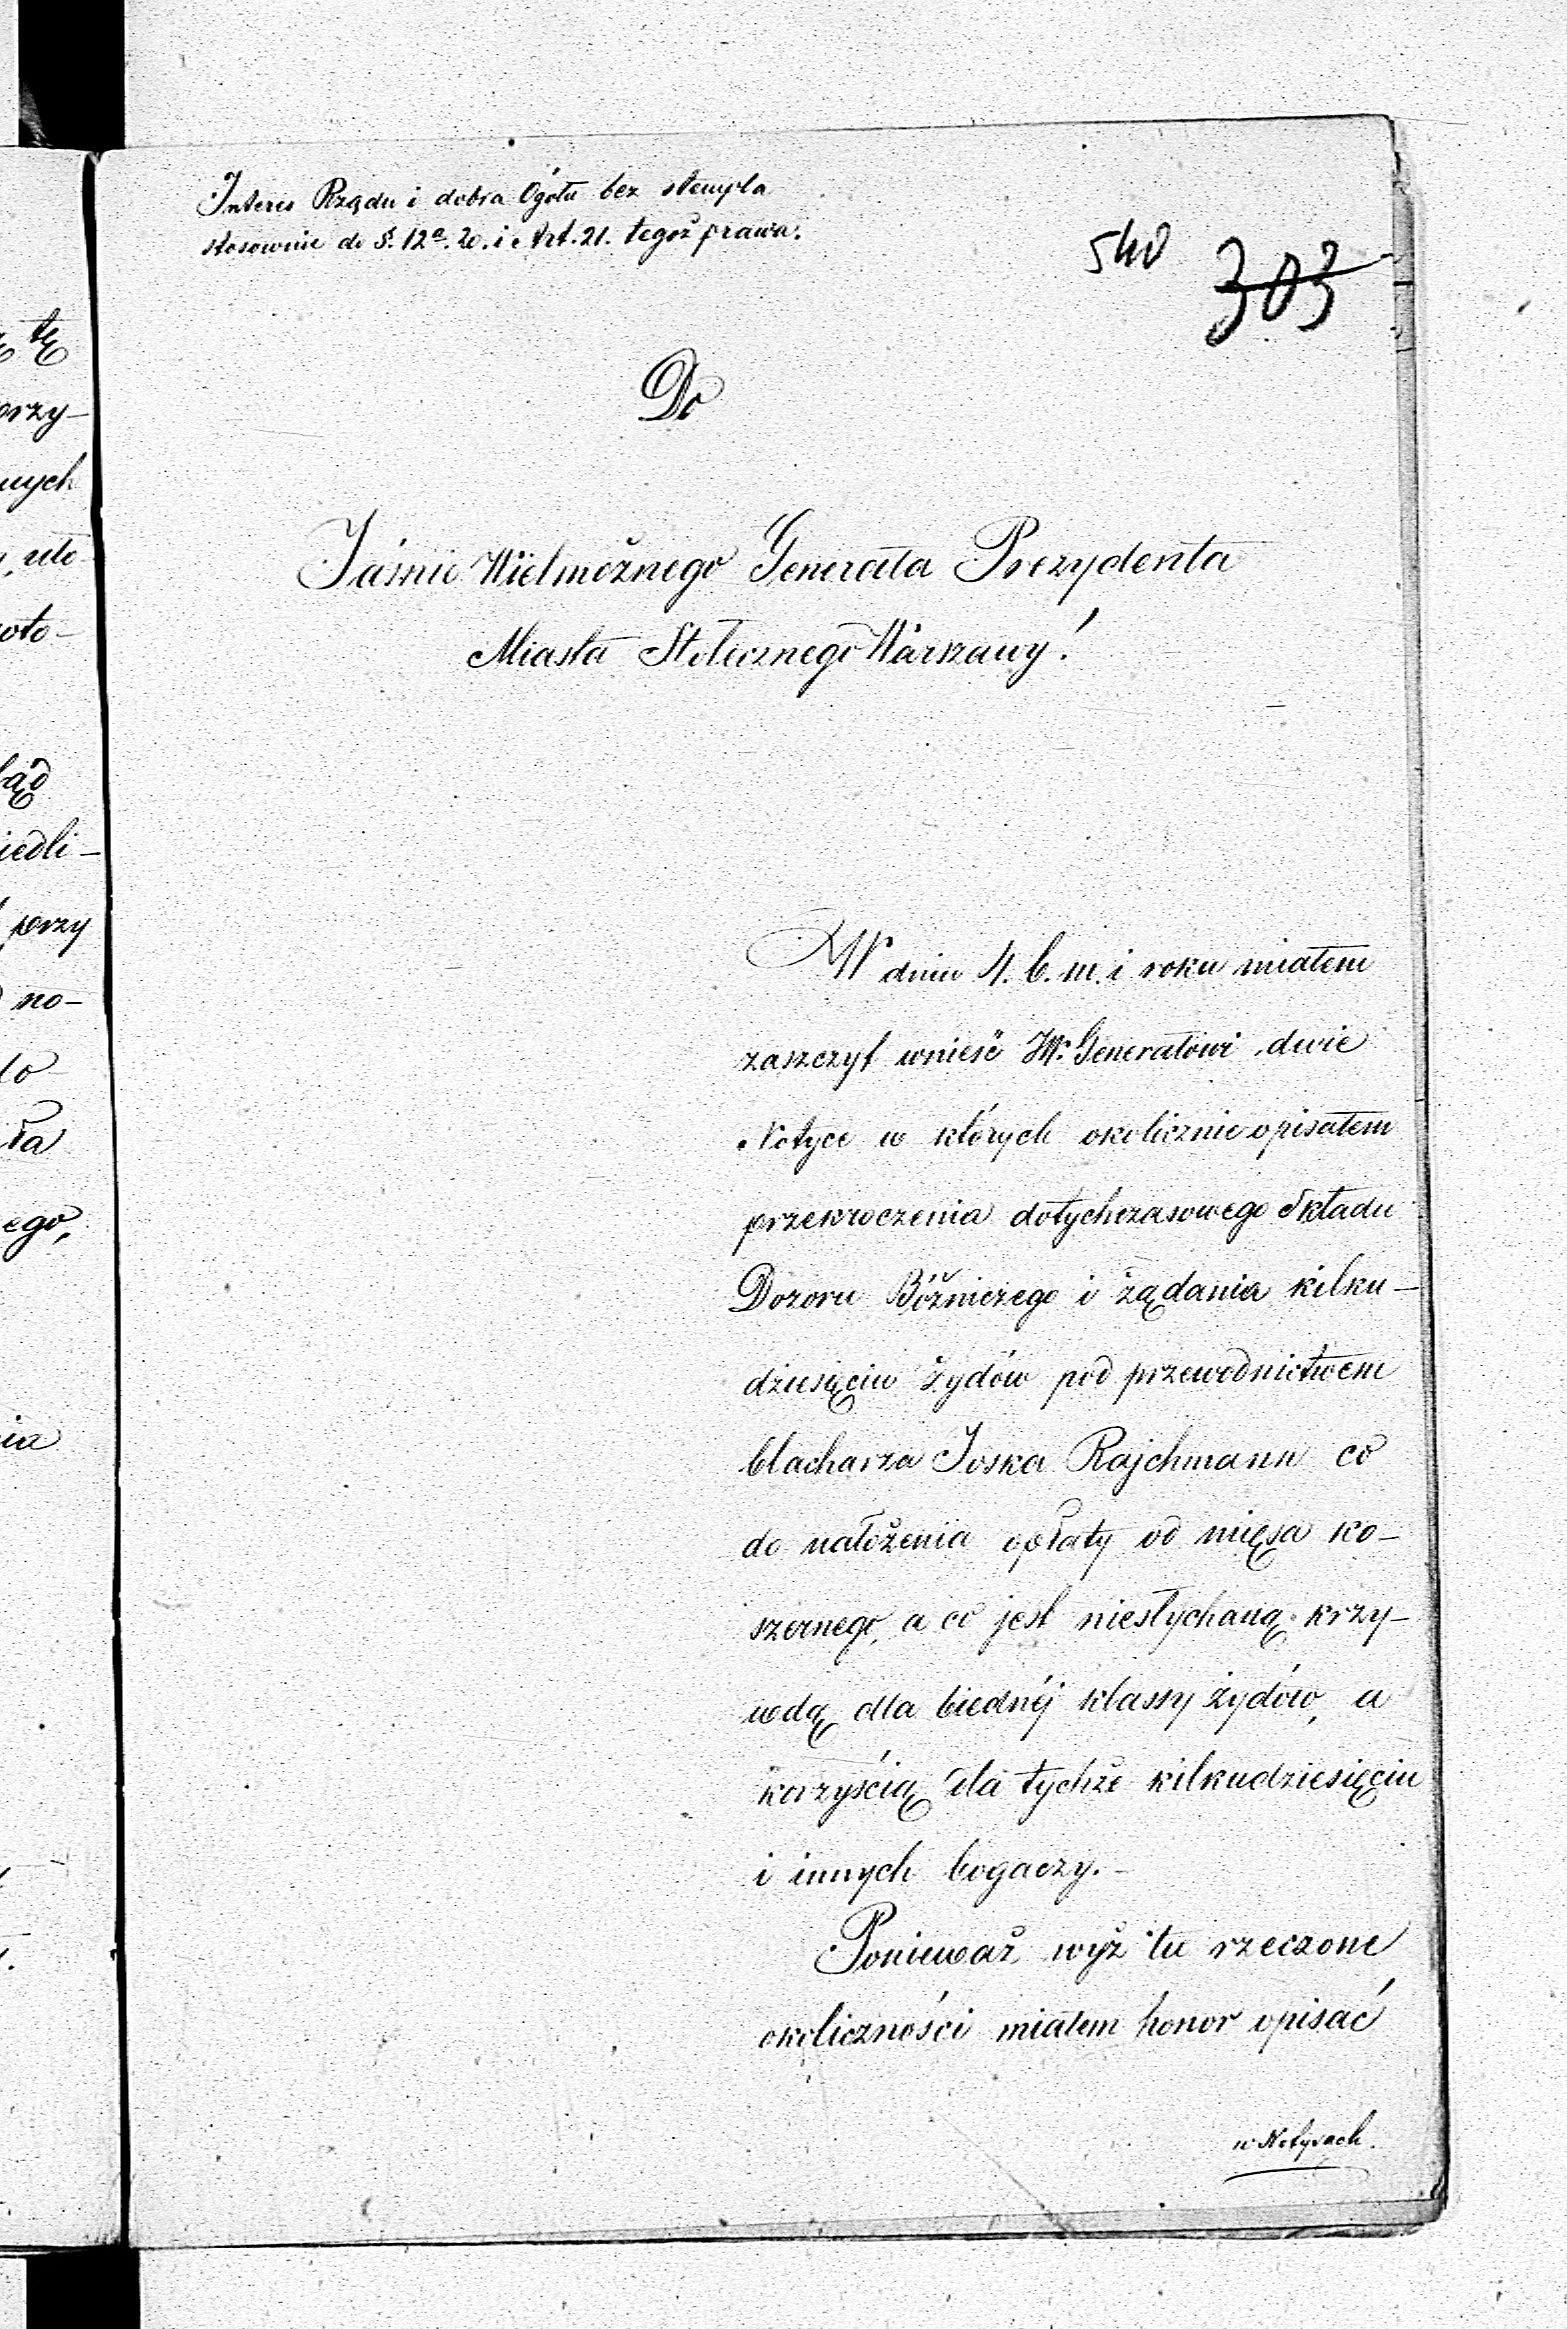 Interes Rządu i dobra Ogółu bez stempla
stosownie do §. 12ª. 20. i Art. 21. tegoż prawa.
540
303
Do
Jaśnie Wielmożnego Generała Prezydenta
Miasta Stołecznego Warszawy!
W dniu 4. b. m. i roku miałem
zaszczyt wnieść JW. Generałowi dwie
Notyce w których okolicznie opisałem
przekroczenia dotychczasowego Składu
Dozoru Bóżniczego i żądania kilku-
dziesięciu żydów pod przewodnictwem
blacharza Joska Rajchmann co
do nałożenia opłaty od mięsa ko-
szernego, a co jest niesłychaną krzy-
wdą dla biednéj klassy żydów, a
korzyścią dla tychże kilkudziesięciu
i innych bogaczy.-
Ponieważ wyż tu rzeczone
okoliczności miałem honor opisać
w Notycach.
tę
orzy-
nych
oło-
iedli-
przy
no-
do
ła
ego,
ia